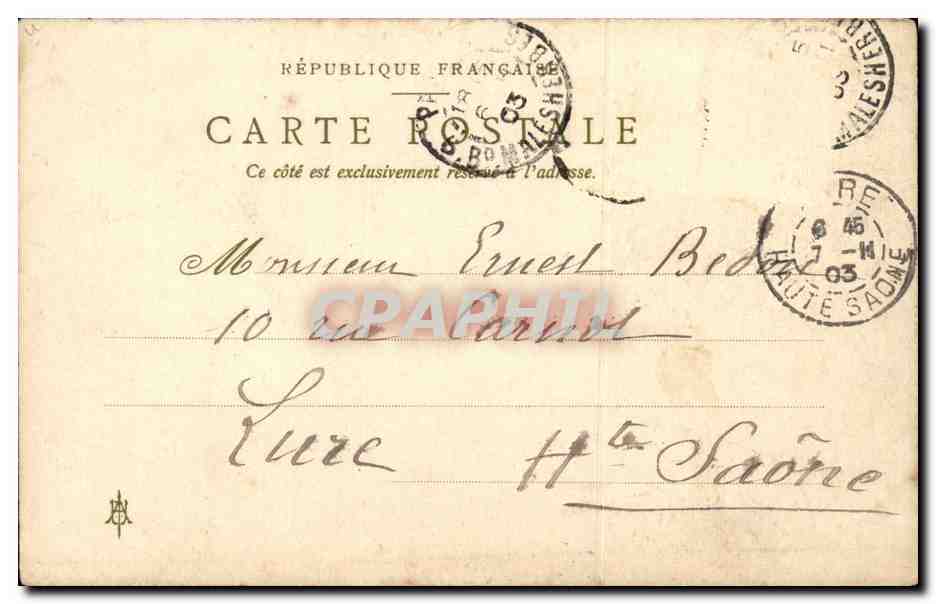 RÉPUBLIQUE FRANÇAISE
CARTE POSTALE
Ce côté est exclusivement réservé à l'adresse.
Monsieur Ernest
10 rue Carnot
Lure Hte Saône
CPARHI
Bd MALESHERBES
03
MALESHERB
RE
6 45
7 -11
03
HAUTE SAONE